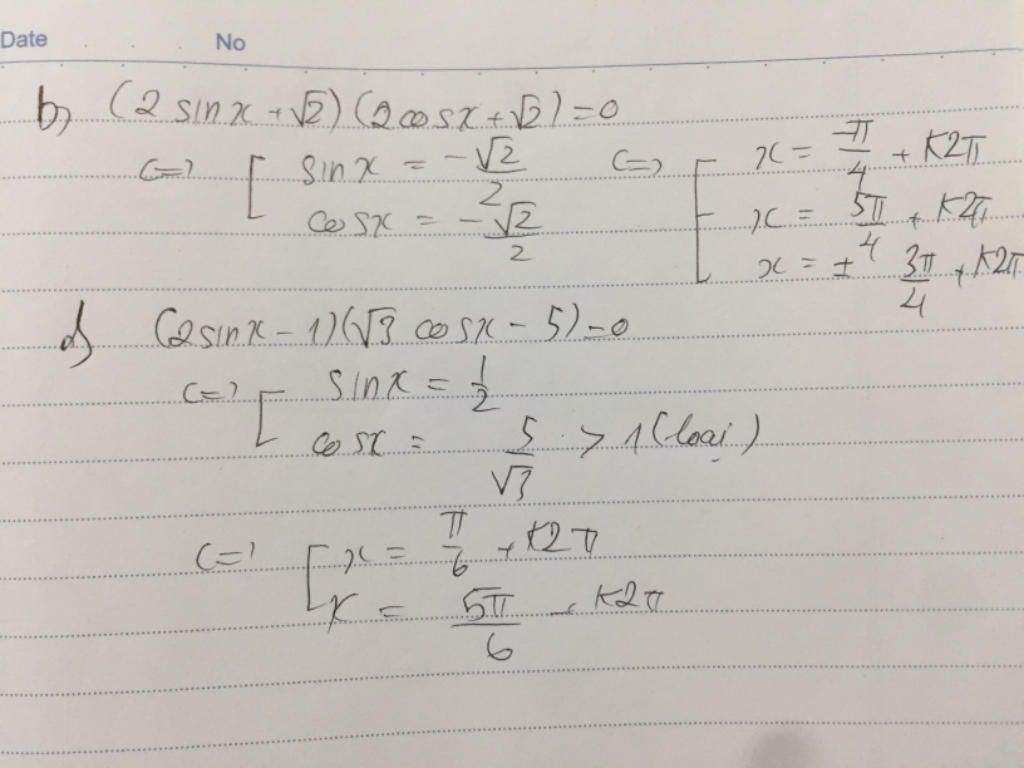 Date No
b) (2 sinx + √2)(2cosx + √2) = 0
<=> [ sinx = -√2/2 <=> [ x = -π/4 + K2π
cosx = -√2/2 x = 5π/4 + K2π
x = ± 3π/4 + K2π
d) (2sinx - 1)(√3 cosx - 5) = 0
<=> [ sinx = 1/2
cosx = 5/√3 > 1 (loại)
<=> [ x = π/6 + K2π
x = 5π/6 + K2π